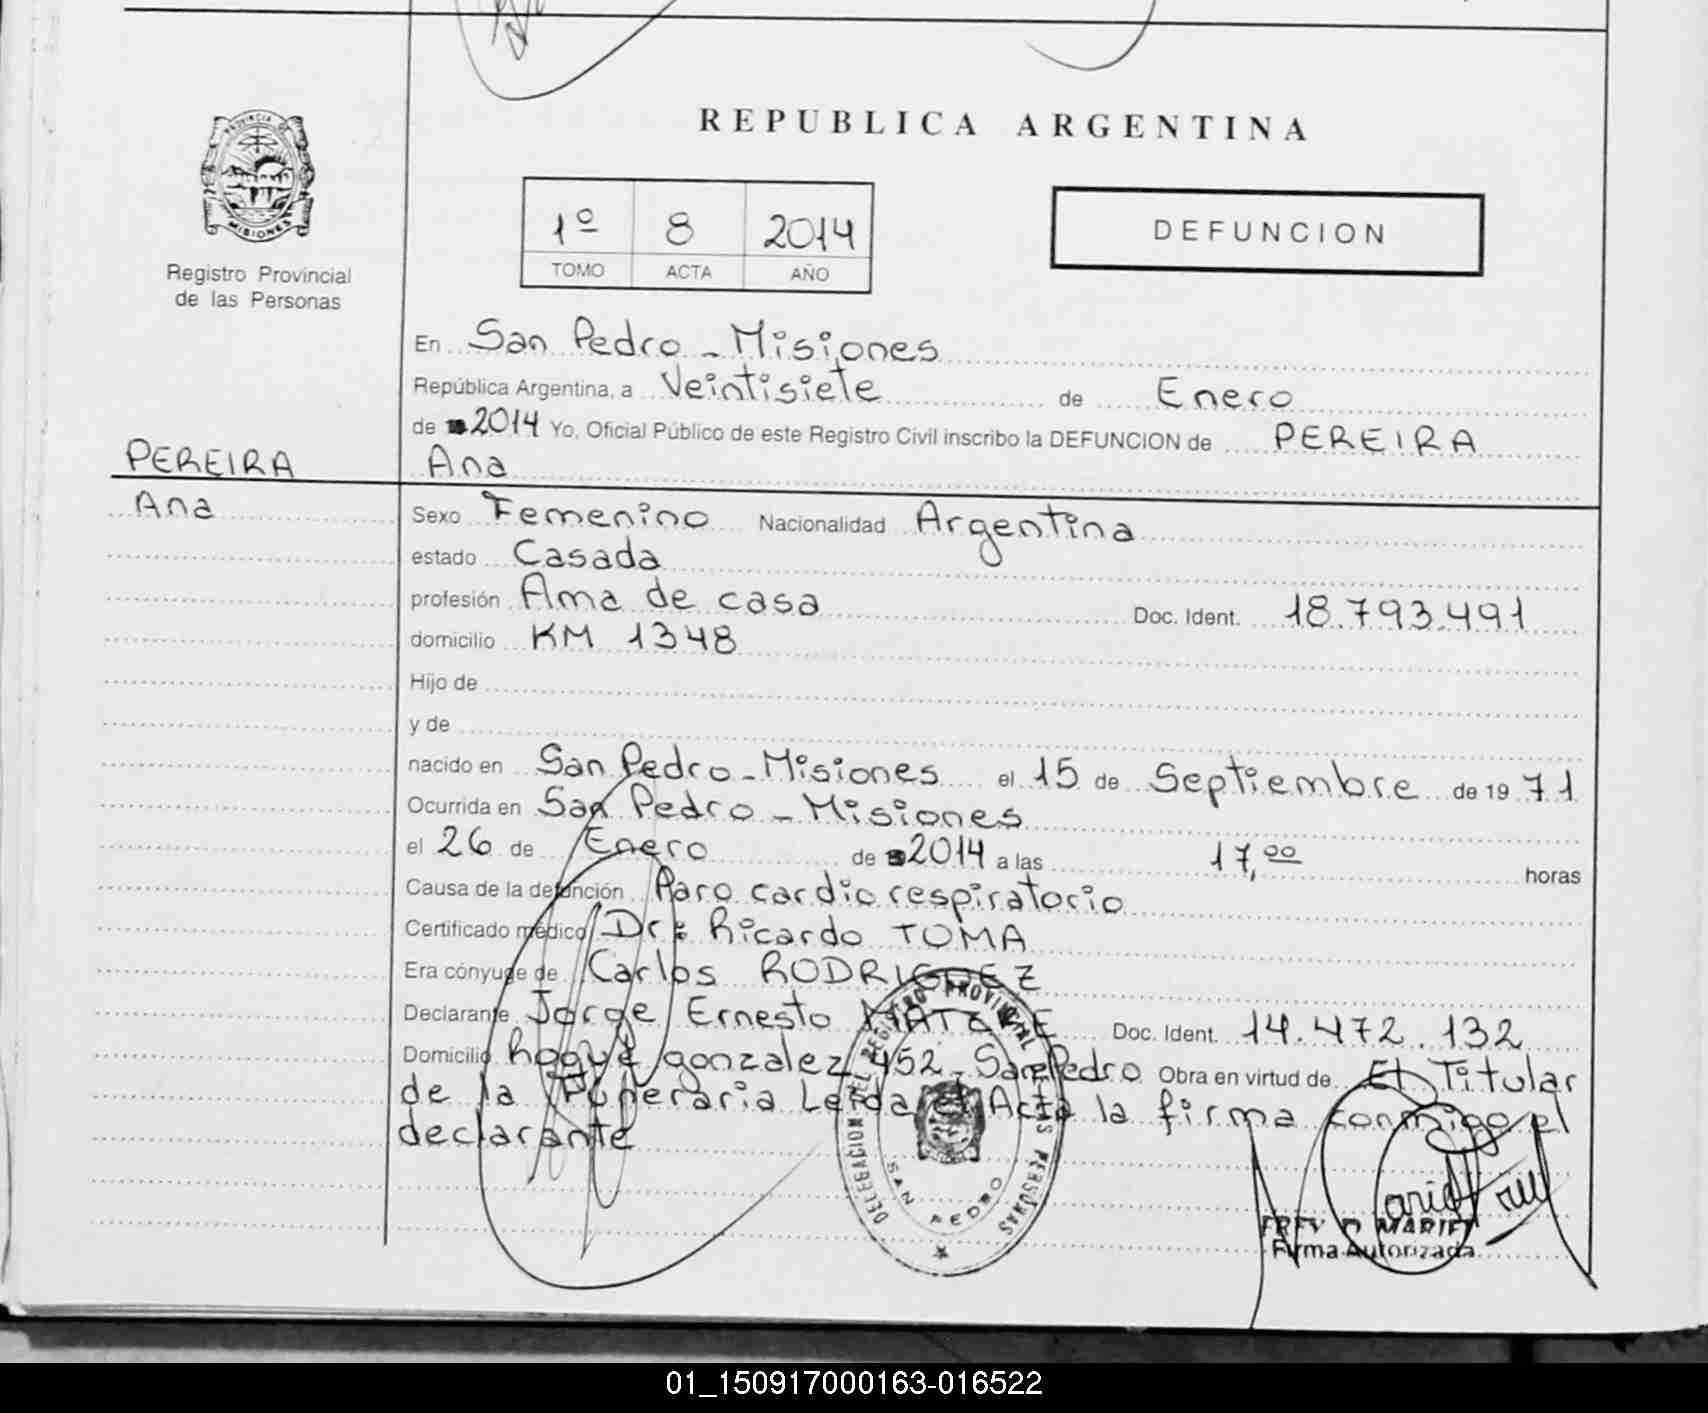 REPUBLICA ARGENTINA
PROVINCIA DE MISIONES
Registro Provincial
de las Personas
1º 8 2014
TOMO ACTA AÑO
DEFUNCION
En San Pedro - Misiones
República Argentina, a Veintisiete de Enero
de 2014 Yo, Oficial Público de este Registro Civil inscribo la DEFUNCION de PEREIRA
Ana
PEREIRA
Ana
Sexo Femenino Nacionalidad Argentina
estado Casada
profesión Ama de casa Doc. Ident. 18.793.491
domicilio KM 1348
Hijo de
y de
nacido en San Pedro - Misiones el 15 de Septiembre de 1971
Ocurrida en San Pedro - Misiones
el 26 de Enero de 2014 a las 17,00 horas
Causa de la defunción Paro cardio respiratorio
Certificado médico Dr: Ricardo TOMA
Era cónyuge de Carlos RODRIGUEZ
Declarante Jorge Ernesto Doc. Ident. 14.472.132
Domicilio Roque gonzalez 452 - San Pedro Obra en virtud de El Titular
de la Funeraria Leida el Acta la firma conmigo el
declarante
DELEGACION DEL REGISTRO PROVINCIAL DE LAS PERSONAS
SAN PEDRO
Firma Autorizada
01_150917000163-016522